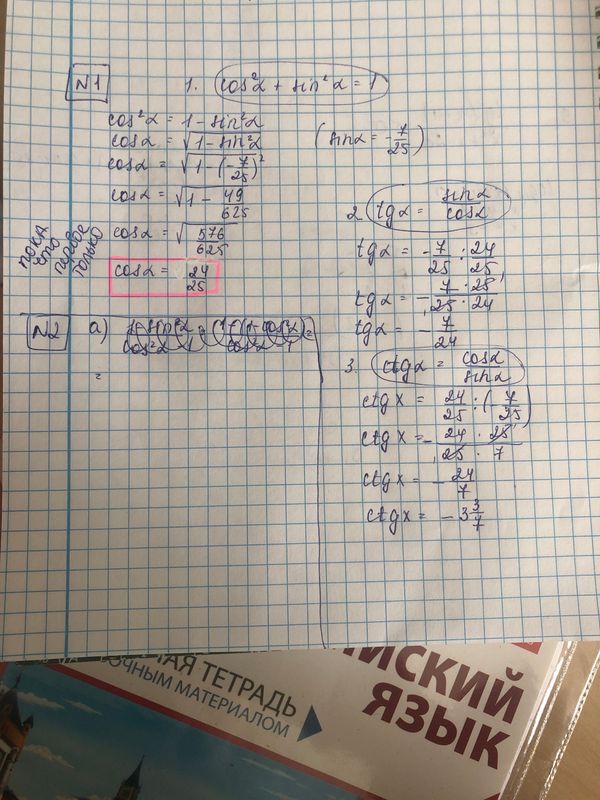 N1
1. cos²α + sin²α = 1
cos²α = 1 - sin²α
cosα = √(1 - sin²α)
(sinα = -7/25)
cosα = √(1 - (-7/25)²)
cosα = √(1 - 49/625)
cosα = √(576/625)
cosα = 24/25
пока
это
первое
только
2. tgα = sinα/cosα
tgα = -7/25 : 24/25
tgα = - 7 · 25/25 · 24
tgα = - 7/24
3. ctgα = cosα/sinα
ctgx = 24/25 : (-7/25)
ctgx = - 24 · 25/25 · 7
ctgx = - 24/7
ctgx = - 3 3/7
N2
а)
=
ТЕТРАДЬ
ОЧНЫМ МАТЕРИАЛОМ
ИЙСКИЙ
ЯЗЫК